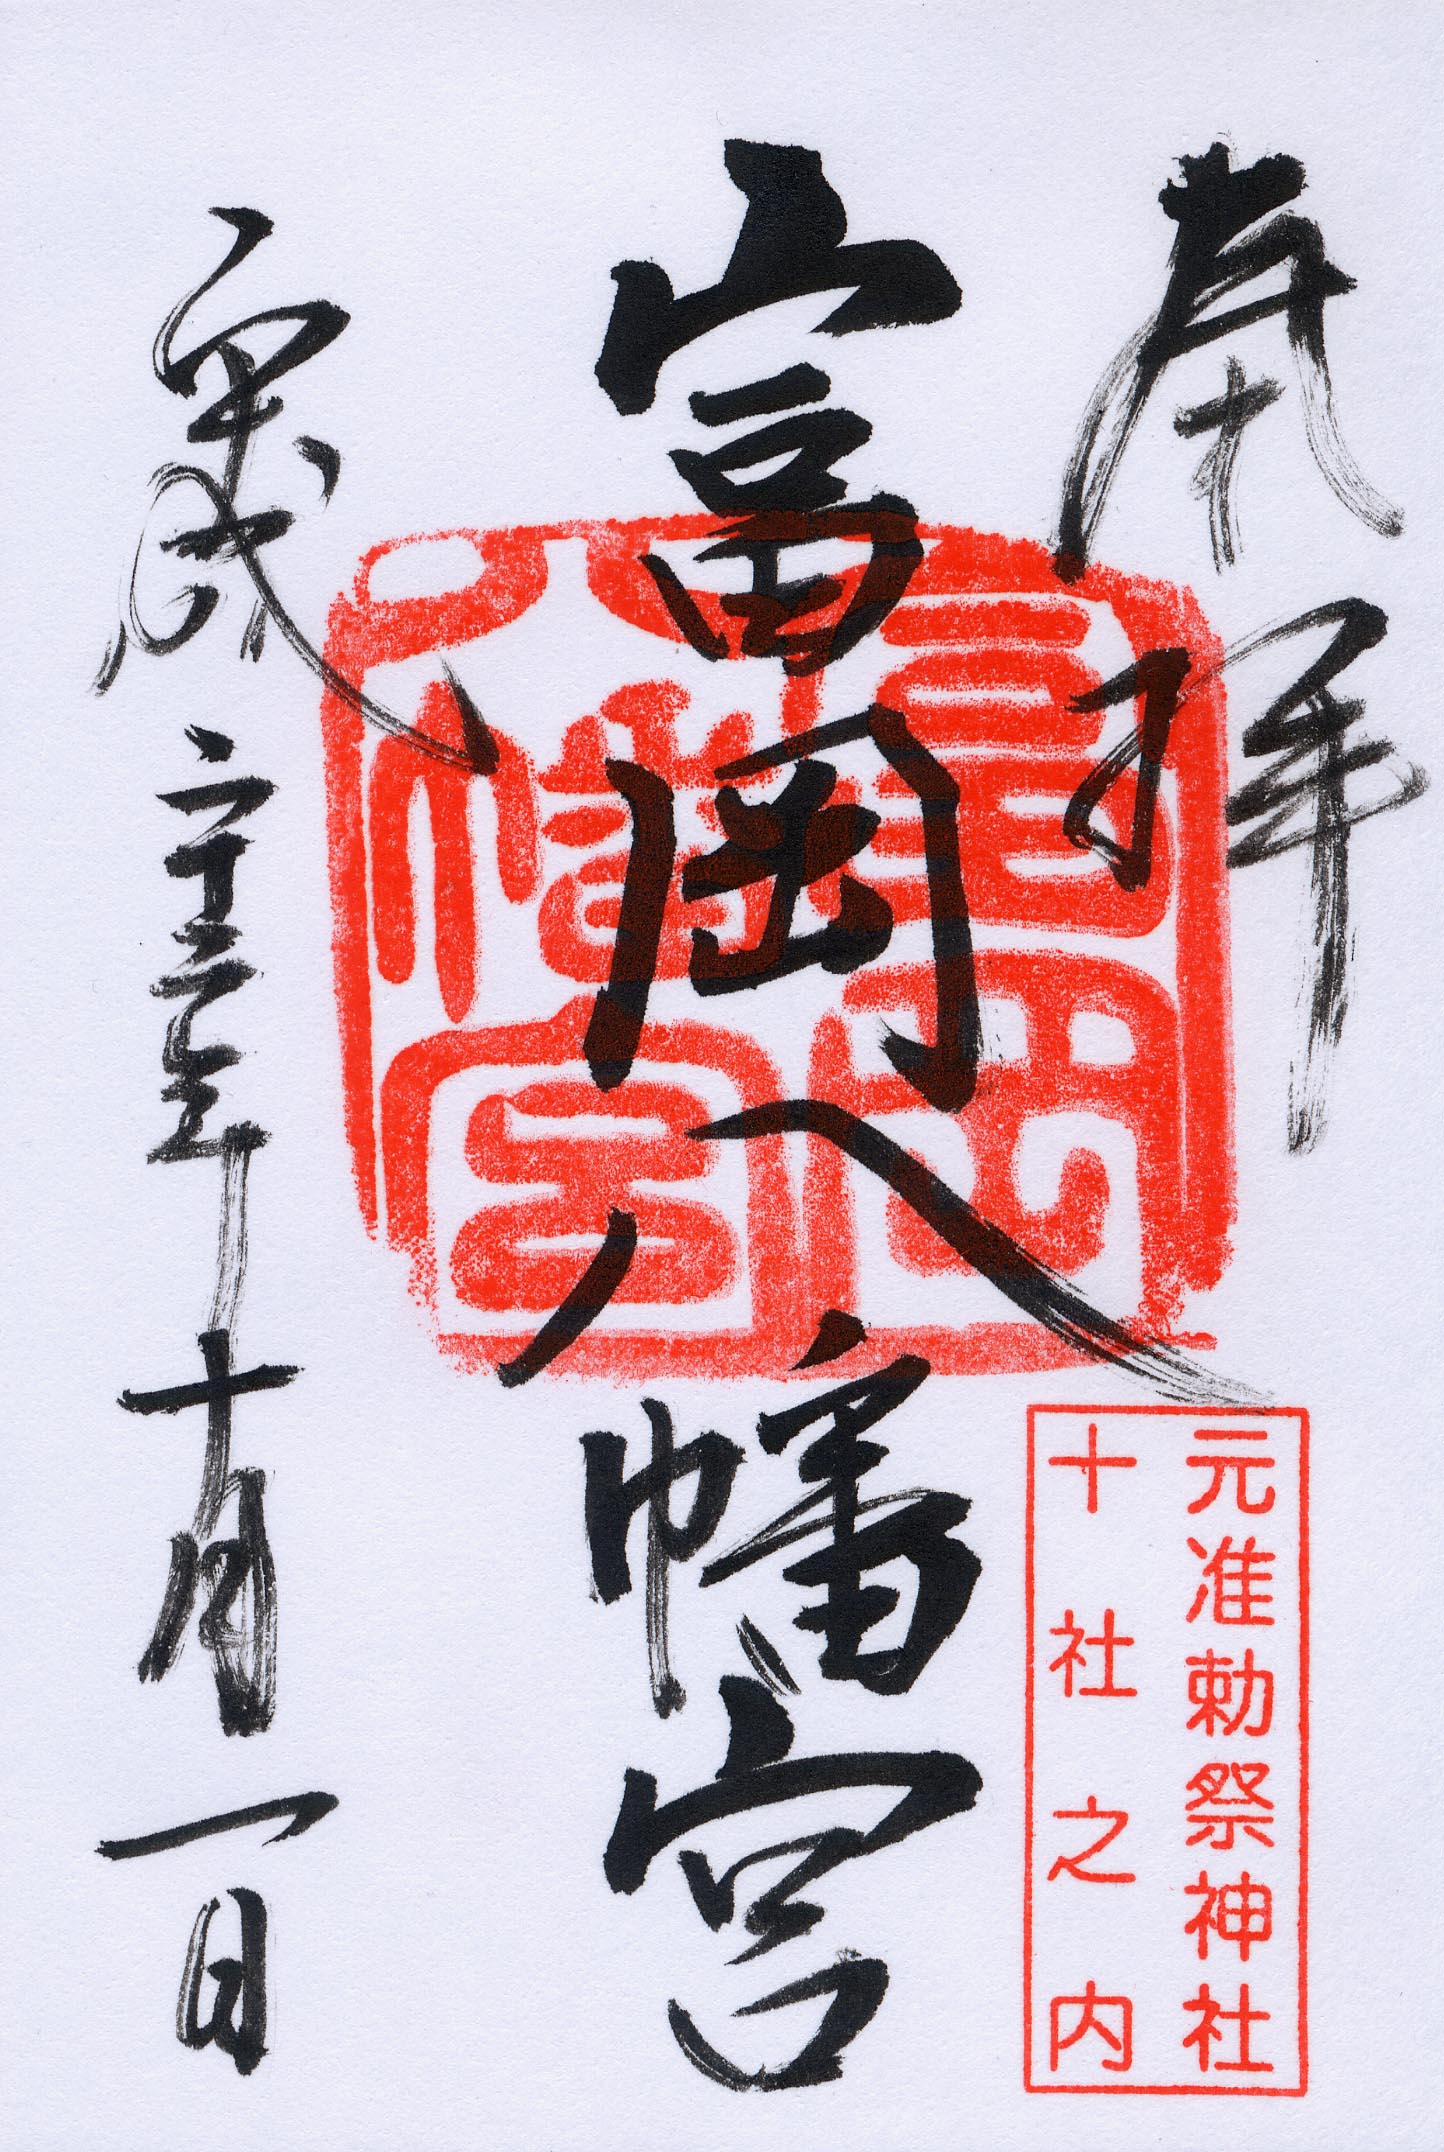 奉拝
元准勅祭神社
十社之内
富岡八幡宮
富岡
八幡宮
平成二十三年十月一日